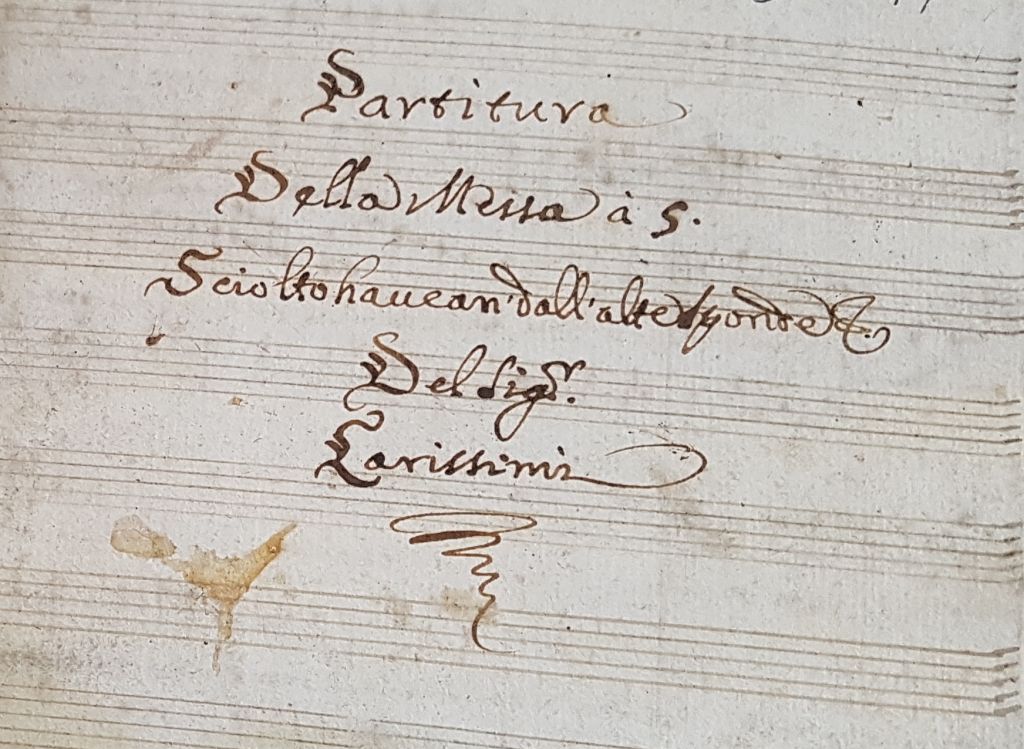 Partitura
Della Messa à 5.
Sciolto hauean' dall'alte sponde &.
Del Sig.r
Carissimi